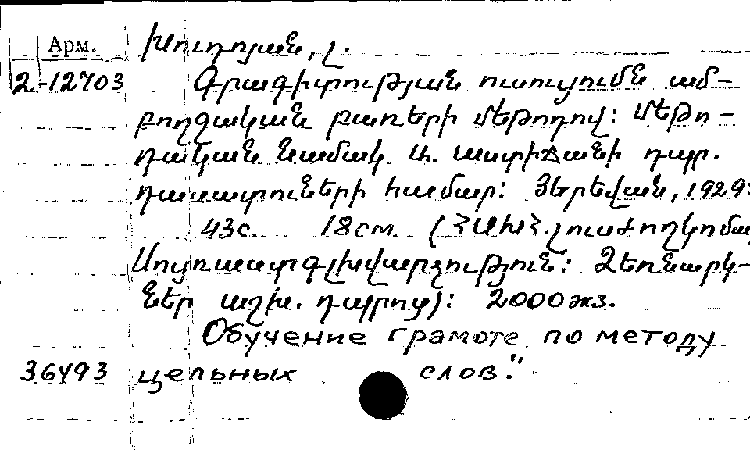 Арм. Խուդոյան, Լ.
2-12703 Գրագիտության ուսուցումն ամ-
բողջական բառերի մեթոդով: Մեթո-
դական նամակ Ա. աստիճանի դպր.
դասատուների համար: Յերեվան, 1929:
43с. 18см. (ՀՍԽՀ. լուսժողկոմատ
Սոցուսատգլխվարչություն: Ձեռնարկ-
ներ աշխ. դպրոց): 2000 экз.
Обучение грамоте по методу
36493 цельных слов."